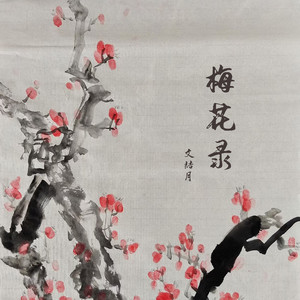 梅花录
文绮月